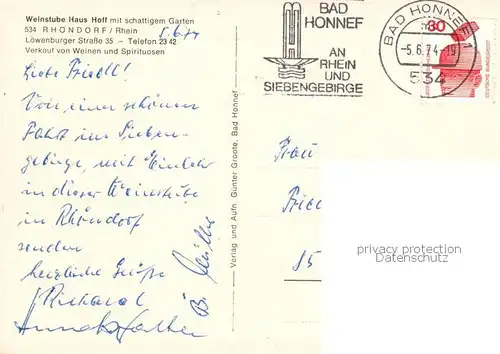 Weinstube Haus Hoff mit schattigem Garten
534 RHÖNDORF / Rhein
Löwenburger Straße 35 – Telefon 23 42
Verkauf von Weinen und Spirituosen
5.6.74
BAD
HONNEF
AN
RHEIN
UND
SIEBENGEBIRGE
BAD HONNEF 1
-5.6.74-19
534
80
DEUTSCHE BUNDESPOST
Liebe Friedl!
Von einer schönen
Fahrt im Sieben-
gebirge, mit Einkehr
in dieser Weinstube
in Rhöndorf
senden
herzliche Grüße
Richard
Verlag und Aufn. Günter Groote, Bad Honnef
Frau
85
privacy protection
Datenschutz